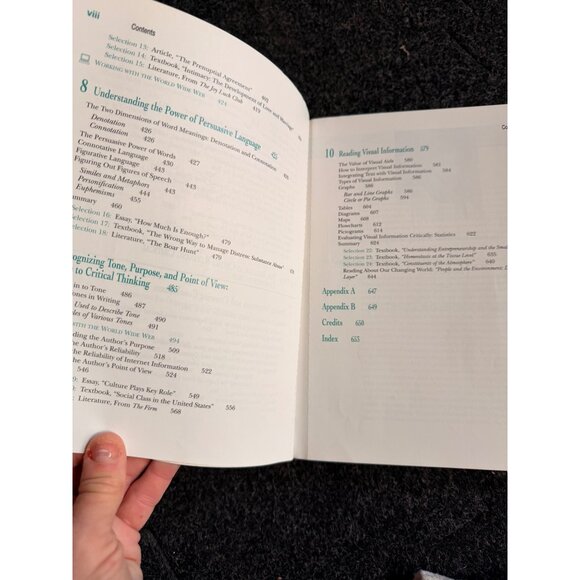 viii
Contents
Selection 13: Article, "The Prenuptial Agreement" 401
Selection 14: Textbook, "Intimacy: The Development of Love and
Selection 15: Literature, From The Joy Luck Club 419
WORKING WITH THE WORLD WIDE WEB 424
8 Understanding the Power of Persuasive Language 425
The Two Dimensions of Word Meanings: Denotation and Connotation
Denotation 426
Connotation 426
The Persuasive Power of Words 427
Connotative Language 430
Figurative Language 443
Figuring Out Figures of Speech 443
Similes and Metaphors 443
Personification 444
Euphemisms 455
ummary 460
Selection 16: Essay, "How Much Is Enough?" 470
Selection 17: Textbook, "The Wrong Way to Manage Distress: Substance Abuse"
Selection 18: Literature, "The Boar Hunt" 479
cognizing Tone, Purpose, and Point of View:
to Critical Thinking 485
in to Tone 486
ones in Writing 487
Used to Describe Tone 490
les of Various Tones 491
WITH THE WORLD WIDE WEB 494
ding the Author's Purpose 509
he Author's Reliability 518
he Reliability of Internet Information 522
he Author's Point of View 524
546
9: Essay, "Culture Plays Key Role" 549
0: Textbook, "Social Class in the United States" 556
: Literature, From The Firm 568
Co
10 Reading Visual Information 579
The Value of Visual Aids 580
How to Interpret Visual Information 581
Integrating Text with Visual Information 584
Types of Visual Information 586
Graphs 586
Bar and Line Graphs 586
Circle or Pie Graphs 594
Tables 604
Diagrams 607
Maps 608
Flowcharts 612
Pictograms 614
Evaluating Visual Information Critically: Statistics 622
Summary 624
Selection 22: Textbook, "Understanding Entrepreneurship and the Smal
Selection 23: Textbook, "Homeostasis at the Tissue Level" 635
Selection 24: Textbook, "Constituents of the Atmosphere" 640
Reading About Our Changing World: "People and the Environment:
Layer" 644
Appendix A 647
Appendix B 649
Credits 650
Index 653